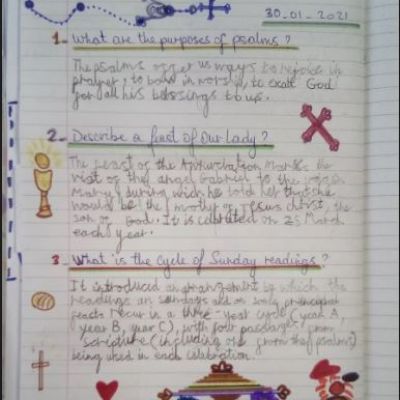 30-01-2021
1- What are the purposes of psalms?
The psalms offer us ways to rejoice in
prayer, to bow in worship, to exalt God
for all his blessings to us.
2- Describe a feast of Our Lady?
The feast of the Annunciation Marks the
visit of the angel Gabriel to the
Mary, during wich he told her that she
would be the mother of Jesus christ, the
son of God. It is celebrated on 25 March
each year.
3- What is the cycle of Sunday readings?
It introduced an arrangement by which the
readings on sundays and on some principal
feasts recur in a three-year cycle (year A,
year B, year C), with four passages from
scripture (including one from the psalms)
being used in each celebration.